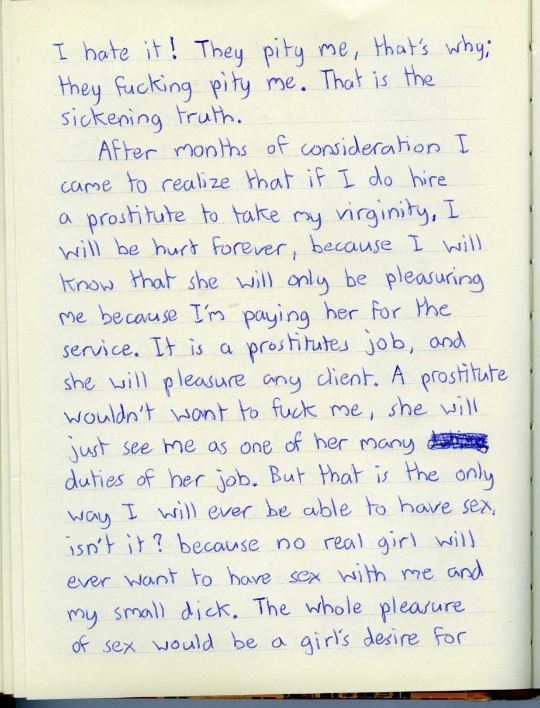 I hate it! They pity me, that's why;
they fucking pity me. That is the
sickening truth.
After months of consideration I
came to realize that if I do hire
a prostitute to take my virginity, I
will be hurt forever, because I will
know that she will only be pleasuring
me because I'm paying her for the
service. It is a prostitutes job, and
she will pleasure any client. A prostitute
wouldn't want to fuck me, she will
just see me as one of her many
duties of her job. But that is the only
way I will ever be able to have sex,
isn't it? because no real girl will
ever want to have sex with me and
my small dick. The whole pleasure
of sex would be a girl's desire for